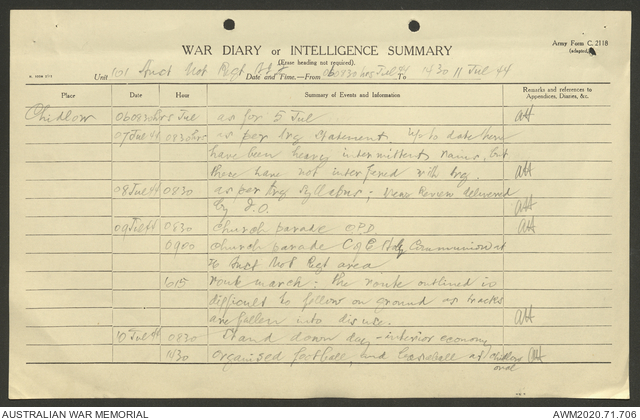 Army Form C. 2118
(adapted)
WAR DIARY or INTELLIGENCE SUMMARY
(Erase heading not required).
Unit 101 Aust Mot Regt AIF Date and Time.—From 060830hrs Jul 44 To 1130 11 Jul 44
Place Date Hour Summary of Events and Information Remarks and references to Appendices, Diaries, &c.
Chidlow 060830hrs Jul as for 5 Jul
07 Jul 44 0830hrs as per trg statement up to date there
have been heavy intermittent rains, but
these have not interfered with trg.
08 Jul 44 0830 as per trg syllabus; News Review delivered
by I.O.
09 Jul 44 0830 Church parade O.P.D.
0900 Church parade C of E Holy Communion at
76 Aust Mot Regt area
1015 route march: the route outlined is
difficult to follow on ground as tracks
are fallen into disuse.
10 Jul 44 0830 Stand down day - interior economy
1130 organised football, and baseball at Chidlow
oval
AUSTRALIAN WAR MEMORIAL
AWM2020.71.706